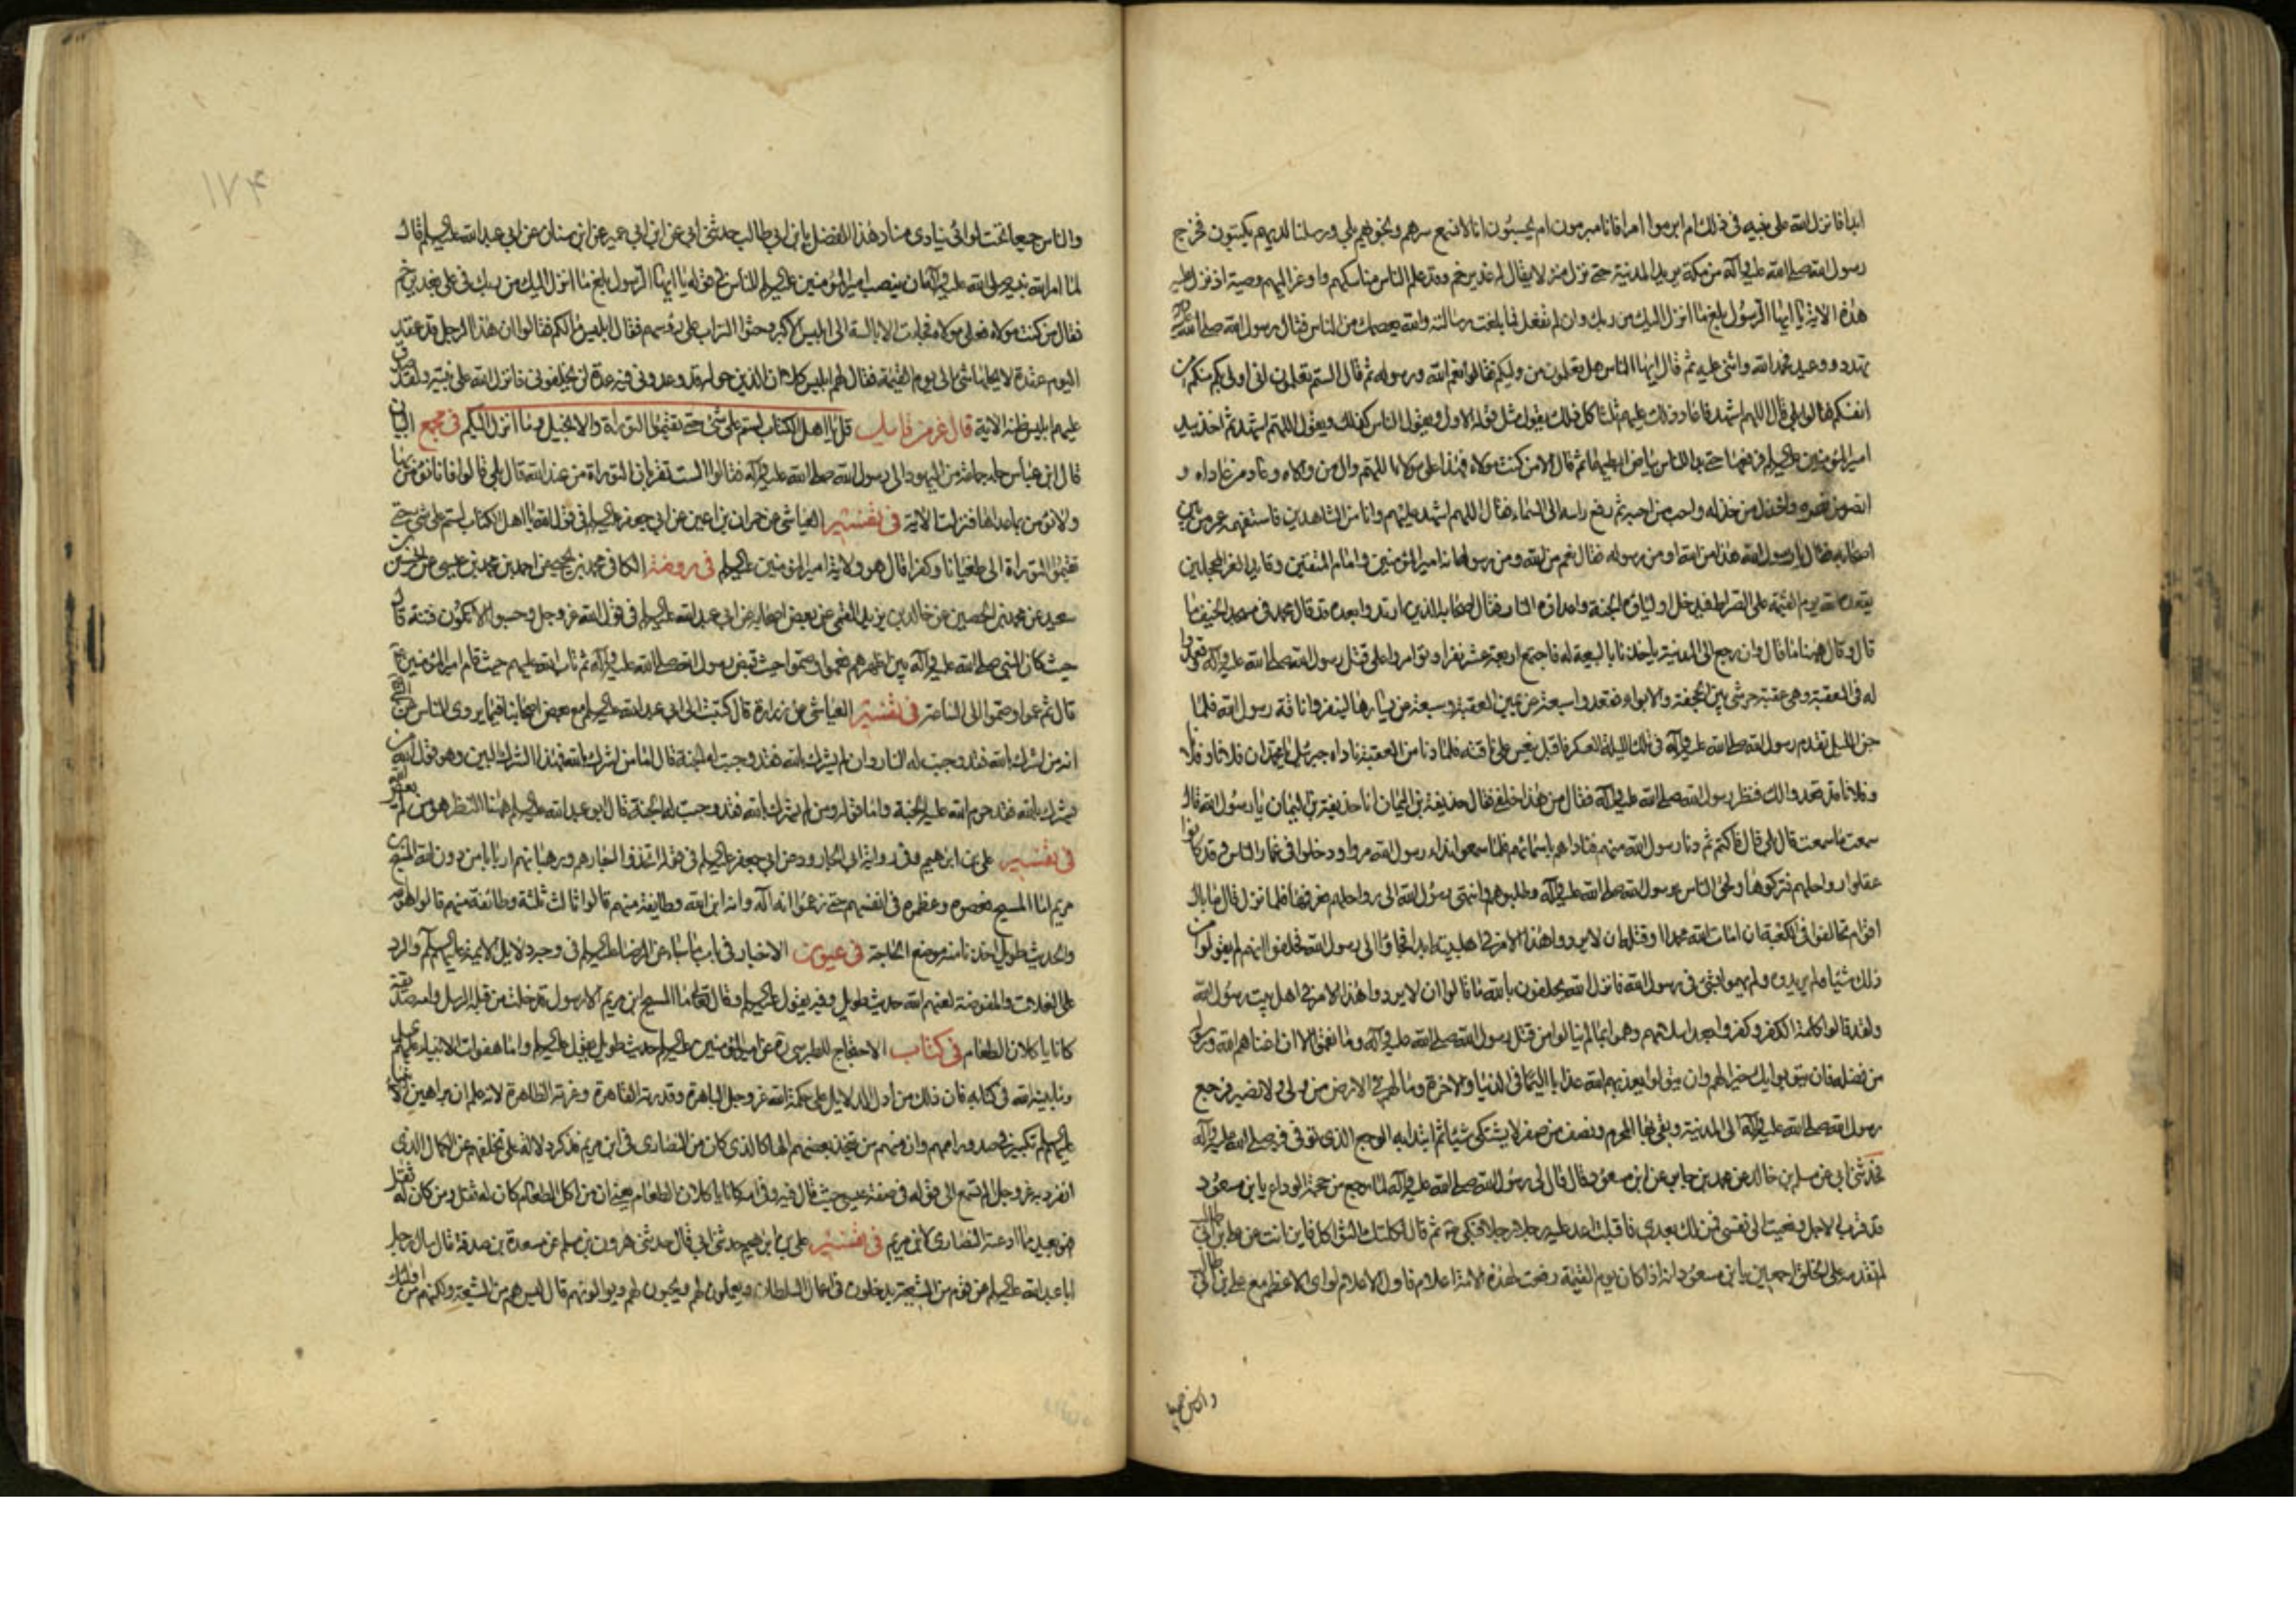 ابدا فانزل الله على نبيه في ذلك ام ابرموا امرا فانا مبرمون ام يحسبون انا لا نسمع سرهم ونجويهم بلى ورسلنا لديهم يكتبون فخرج
رسول الله صلى الله عليه وآله من مكة يريد المدينة حتى نزل منزلا يقال له غدير خم وقد علم الناس مناسكهم واوعز اليهم وصيته اذ نزل عليه
هذه الاية يا ايها الرسول بلغ ما انزل اليك من ربك وان لم تفعل فما بلغت رسالته والله يعصمك من الناس فقال رسول الله صلى الله عليه وآله
تهديد ووعيد فحمد الله واثنى عليه ثم قال ايها الناس هل تعلمون من وليكم فقالوا نعم الله ورسوله ثم قال الستم تعلمون انى اولى بكم منكم من
انفسكم قالوا بلى قال اللهم اشهد فاعاد ذلك عليهم ثلثا كل ذلك يقول مثل قوله الاول ويقول الناس كذلك ويقول اللهم اشهد ثم اخذ بيد
امير المؤمنين عليه السلم فرفعها حتى بدا للناس بياض ابطيهما ثم قال الا من كنت مولاه فهذا على مولاه اللهم وال من والاه وعاد من عاداه و
انصر من نصره واخذل من خذله واحب من احبه ثم رفع راسه الى السماء فقال اللهم اشهد عليهم وانا من الشاهدين فاستفهمه عمر من بين
اصحابه فقال يا رسول الله هذا من الله او من رسوله فقال نعم من الله ومن رسوله انه امير المؤمنين وامام المتقين وقايد الغر المحجلين
يقعده الله يوم القيمة على الصراط فيدخل اولياؤه الجنة واعداؤه النار فقال اصحابه الذين ارتدوا بعده قد قال محمد في مسجد الخيف ما
قال وقال ههنا ما قال وان رجع الى المدينة ياخذنا بالبيعة له فاجتمع اربعة عشر نفرا وتوامروا على قتل رسول الله صلى الله عليه وآله وقعدوا
له في العقبة وهى عقبة هرشى بين الجحفة والابواء فقعدوا سبعة عن يمين العقبة وسبعة عن يسارها لينفروا ناقة رسول الله فلما
جن الليل تقدم رسول الله صلى الله عليه وآله في تلك الليلة العسكر فاقبل ينعس على ناقته فلما دنا من العقبة ناداه جبرئيل يا محمد ان فلانا وفلانا
وفلانا قد قعدوا لك فنظر رسول الله صلى الله عليه وآله فقال من هذا خلفي فقال حذيفة بن اليمان انا حذيفة بن اليمان يا رسول الله قال
سمعت ما سمعت قال بلى قال فاكتم ثم دنا رسول الله منهم فناداهم باسمائهم فلما سمعوا نداء رسول الله مروا ودخلوا في غمار الناس وقد كانوا
عقلوا رواحلهم فتركوها ولحق الناس برسول الله صلى الله عليه وآله وطلبوهم وانتهى رسول الله الى رواحلهم فعرفها فلما نزل قال ما بال
اقوام تحالفوا في الكعبة ان امات الله محمدا او قتله ان لا يردوا هذا الامر في اهل بيته ابدا فجاؤا الى رسول الله فحلفوا انهم لم يقولوا من
ذلك شيئا ولم يريدوه ولم يهموا بشئ في رسول الله فانزل الله يحلفون بالله ما قالوا ان لا يردوا هذا الامر في اهل بيت رسول الله
ولقد قالوا كلمة الكفر وكفروا بعد اسلامهم وهموا بما لم ينالوا من قتل رسول الله صلى الله عليه وآله وما نقموا الا ان اغناهم الله ورسوله
من فضله فان يتوبوا يك خيرا لهم وان يتولوا يعذبهم الله عذابا اليما في الدنيا والاخرة وما لهم في الارض من ولى ولا نصير فرجع
رسول الله صلى الله عليه وآله الى المدينة وبقى بها المحرم ونصف من صفر لا يشتكى شيئا ثم ابتدا به الوجع الذى توفى فيه صلى الله عليه وآله
فحدثنى ابي عن مسلم بن خالد عن محمد بن جابر عن ابن مسعود قال قال لى رسول الله صلى الله عليه وآله لما رجع من حجة الوداع يا بن مسعود
قد قرب الاجل ونعيت الى نفسى فمن لك بعدى فاقبلت اعد عليه رجلا رجلا فبكى ثم قال ثكلتك الثواكل فاين انت عن على بن ابى طالب
لم تقدمه على الخلق اجمعين يا بن مسعود انه اذا كان يوم القيمة رفعت لهذه الامة اعلام فاول الاعلام لواى الاعظم مع على بن ابى طالب
والناس جميعا تحت لوائى ينادى مناد هذا الفضل يا بن ابي طالب حدثنى ابى عن ابن ابي عمير عن ابن سنان عن ابي عبد الله عليه السلم قال
لما امر الله نبيه صلى الله عليه وآله ان ينصب امير المؤمنين عليه السلم للناس في قوله يا ايها الرسول بلغ ما انزل اليك من ربك في على بغدير خم
فقال من كنت مولاه فعلى مولاه فجاءت الابالسة الى ابليس الاكبر وحثوا التراب على رؤسهم فقال ابليس ما لكم فقالوا ان هذا الرجل قد عقد
اليوم عقدة لا يحلها شئ الى يوم القيمة فقال لهم ابليس كلا ان الذين حوله قد وعدونى فيه عدة لن يخلفونى فانزل الله على نبيه ولقد صدق
عليهم ابليس ظنه الاية قال عز من قايل قل يا اهل الكتاب لستم على شئ حتى تقيموا التورية والانجيل وما انزل اليكم في مجمع البيان
قال ابن عباس جاء جماعة من اليهود الى رسول الله صلى الله عليه وآله فقالوا الست تقر بان التوراة من عند الله قال بلى قالوا فانا نؤمن بها
ولا نؤمن بما عداها فنزلت الاية في تفسير العياشى عن حمران بن اعين عن ابي جعفر عليه السلم في قول الله يا اهل الكتاب لستم على شئ حتى
تقيموا التوراة الى طغيانا وكفرا قال هو ولاية امير المؤمنين عليه السلم في روضة الكافى محمد بن يحيى عن احمد بن محمد بن عيسى عن الحسين بن
سعيد عن محمد بن الحصين عن خالد بن يزيد القمى عن بعض اصحابه عن ابى عبد الله عليه السلم في قول الله عز وجل وحسبوا الا تكون فتنة قال
حيث كان النبى صلى الله عليه وآله بين اظهرهم فعموا وصموا حيث قبض رسول الله صلى الله عليه وآله ثم تاب الله عليهم حيث قام امير المؤمنين ع
قال ثم عموا وصموا الى الساعة في تفسير العياشى عن زرارة قال كتبت الى ابى عبد الله عليه السلم مع بعض اصحابنا فيما يروى الناس عن النبى
انه من اشرك بالله فقد وجبت له النار وان لم يشرك بالله فقد وجبت له الجنة قال اما من اشرك بالله فهذا الشرك البين وهو قول الله من
يشرك بالله فقد حرم الله عليه الجنة واما قوله ومن لم يشرك بالله فقد وجبت له الجنة قال ابو عبد الله عليه السلم ههنا النظر هو من لم يعص الله
في تفسير على بن ابرهيم وفي رواية ابى الجارود عن ابي جعفر عليه السلم في قوله اتخذوا احبارهم ورهبانهم اربابا من دون الله والمسيح بن
مريم اما المسيح فعصوه وعظموه في انفسهم حتى زعموا انه اله وانه ابن الله وطايفة منهم قالوا ثالث ثلثة وطائفة منهم قالوا هو الله
والحديث طويل اخذنا منه موضع الحاجة في عيون الاخبار في باب ما جاء عن الرضا عليه السلم في وجه دلايل الائمة عليهم السلم والرد
على الغلاة والمفوضة لعنهم الله حديث طويل وفيه يقول عليه السلم وقال تعالى ما المسيح ابن مريم الا رسول قد خلت من قبله الرسل وامه صديقة
كانا ياكلان الطعام في كتاب الاحتجاج للطبرسى ره عن امير المؤمنين عليه السلم حديث طويل يقول عليه السلم واما هفوات الانبياء عليهم السلم
وما بينه الله في كتابه فان ذلك من ادل الدلايل على حكمة الله عز وجل الباهرة وقدرته القاهرة وعزته الظاهرة لانه علم ان براهين الانبياء
عليهم السلم تكبر في صدور اممهم وان منهم من يتخذ بعضهم الها كالذى كان من النصارى في ابن مريم فذكر دلالة على تخلفهم عن الكمال الذى
انفرد به عز وجل الم تسمع الى قوله في صفة عيسى حيث قال فيه وفي امه كانا ياكلان الطعام يعنى ان من اكل الطعام كان له ثفل ومن كان له ثفل
فهو بعيد مما ادعته النصارى لابن مريم في تفسير على بن ابرهيم حدثنى ابى قال حدثنى هرون بن مسلم عن مسعدة بن صدقة قال سال رجل
ابا عبد الله عليه السلم عن قوم من الشيعة يدخلون في اعمال السلطان ويعملون لهم ويحبون لهم ويوالونهم قال ليس هم من الشيعة ولكنهم من اولئك
١٧٤